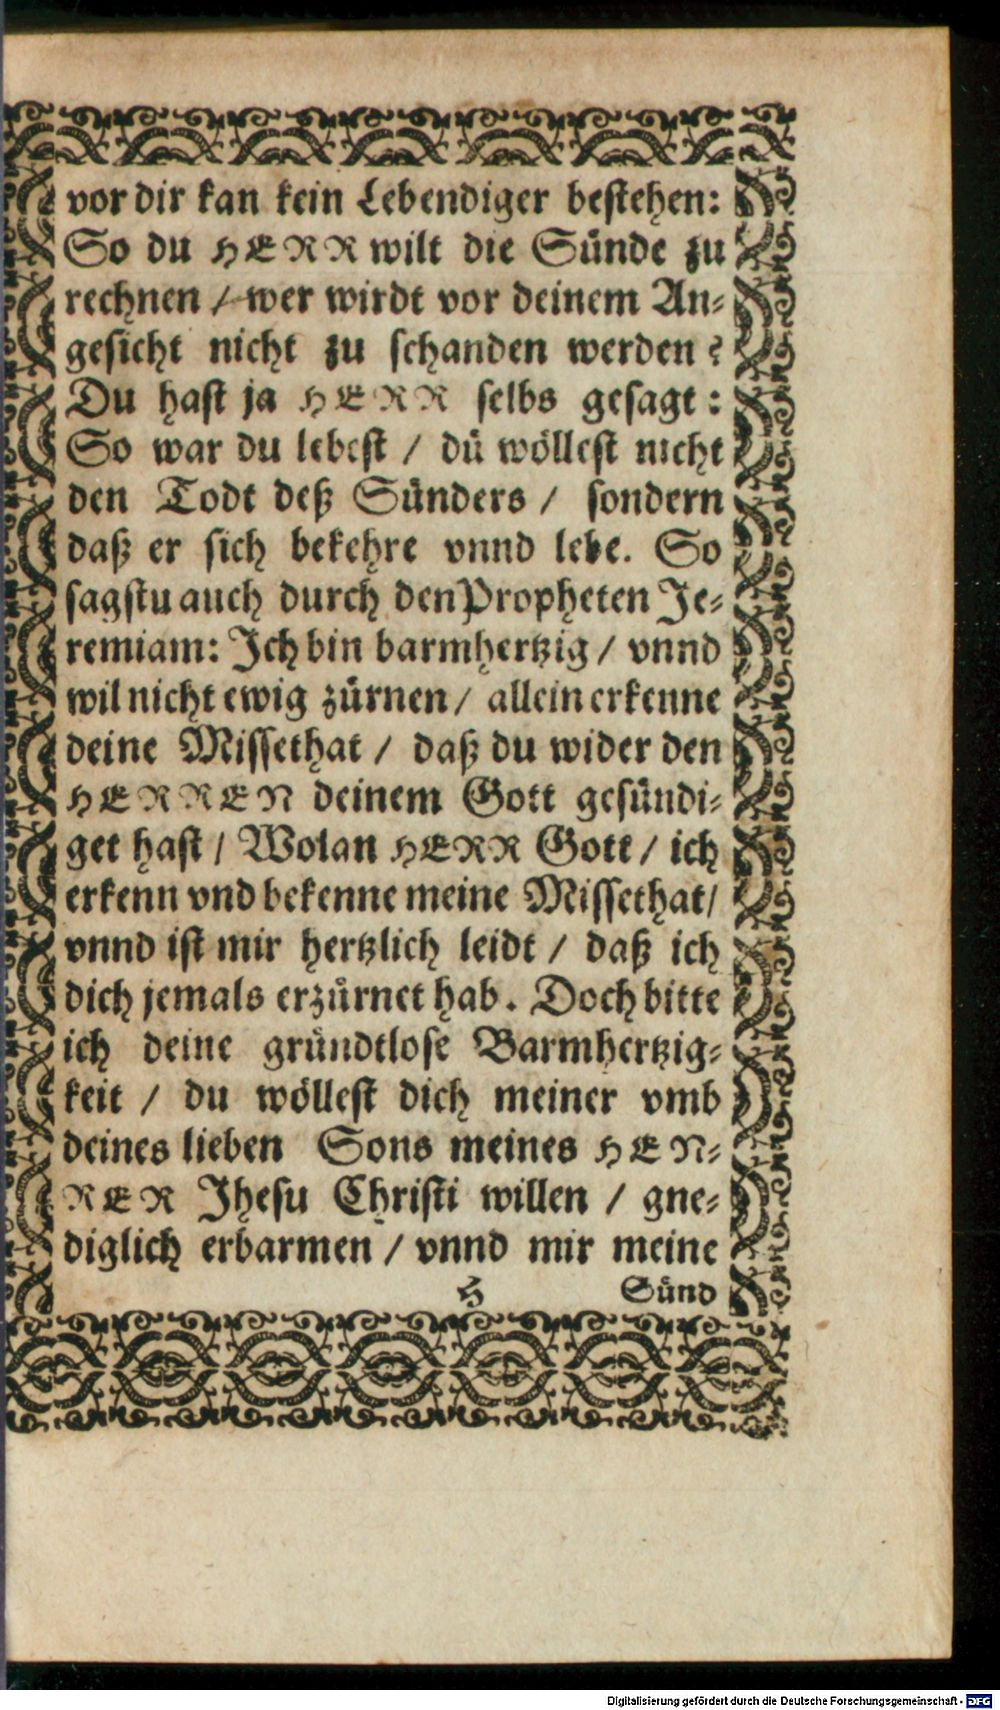 vor dir kan kein Lebendiger bestehen:
So du HERR wilt die Sünde zu
rechnen / wer wirdt vor deinem An-
gesicht nicht zu schanden werden?
Du hast ja HERR selbs gesagt:
So war du lebest / dü wöllest nicht
den Todt deß Sünders / sondern
daß er sich bekehre vnnd lebe. So
sagstu auch durch den Propheten Je-
remiam: Ich bin barmhertzig / vnnd
wil nicht ewig zürnen / allein erkenne
deine Missethat / daß du wider den
HERREN deinem Gott gesündi-
get hast / Wolan HERR Gott / ich
erkenn vnd bekenne meine Missethat /
vnnd ist mir hertzlich leidt / daß ich
dich jemals erzürnet hab. Doch bitte
ich deine gründtlose Barmhertzig-
keit / du wöllest dich meiner vmb
deines lieben Sons meines HEN-
RER Jhesu Christi willen / gne-
diglich erbarmen / vnnd mir meine
H Sünd
Digitalisierung gefördert durch die Deutsche Forschungsgemeinschaft - DFG